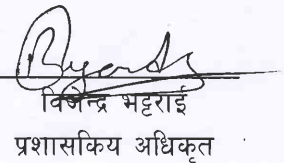 विजेन्द्र भट्टराई
प्रशासकिय अधिकृत